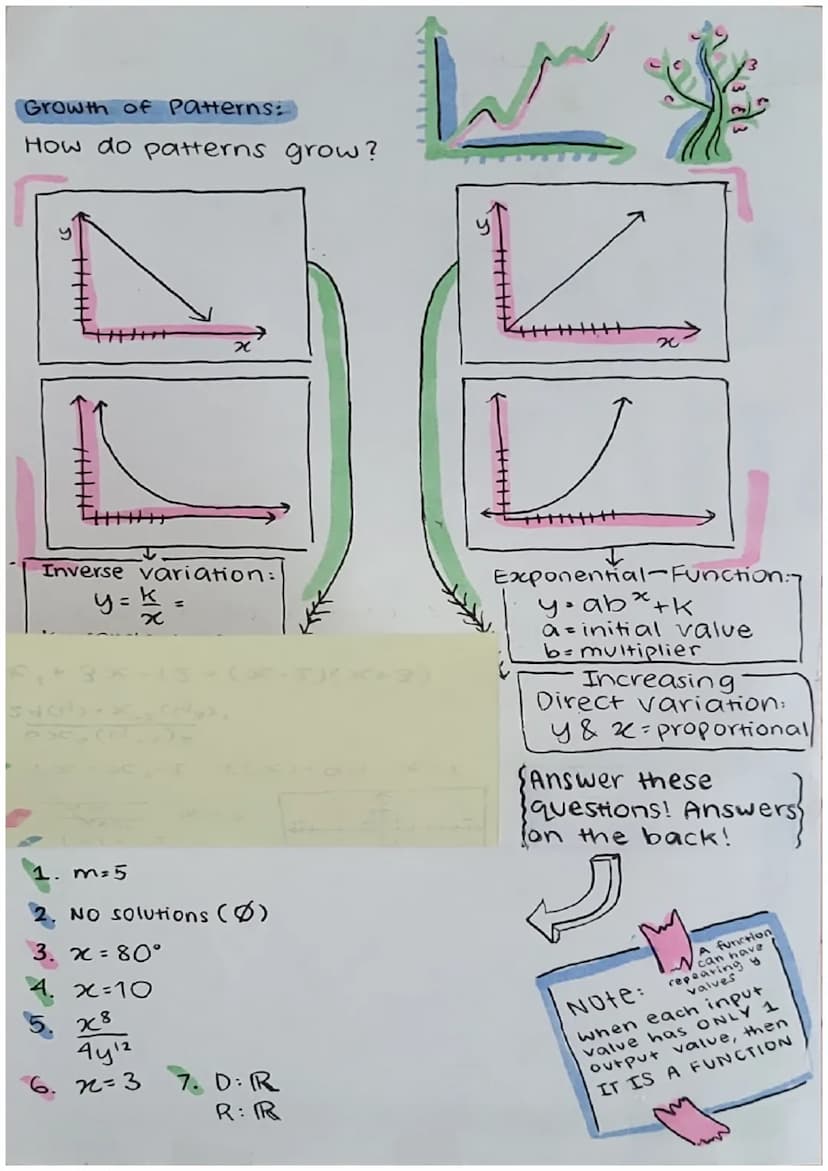 Growth of Patterns:
How do patterns grow?
y
x
y
x
Inverse variation:
y = k/x =
Exponential-Function:
y = ab^x + k
a = initial value
b = multiplier
Increasing
Direct variation:
y & x = proportional
Answer these
questions! Answers
on the back!
1. m=5
2. No solutions (Ø)
3. x = 80°
4. x=10
5. x^8/4y^12
6. x=3 7. D: ℝ
R: ℝ
A function
can have
repearing y
values
NOTE:
when each input
value has ONLY 1
output value, then
IT IS A FUNCTION